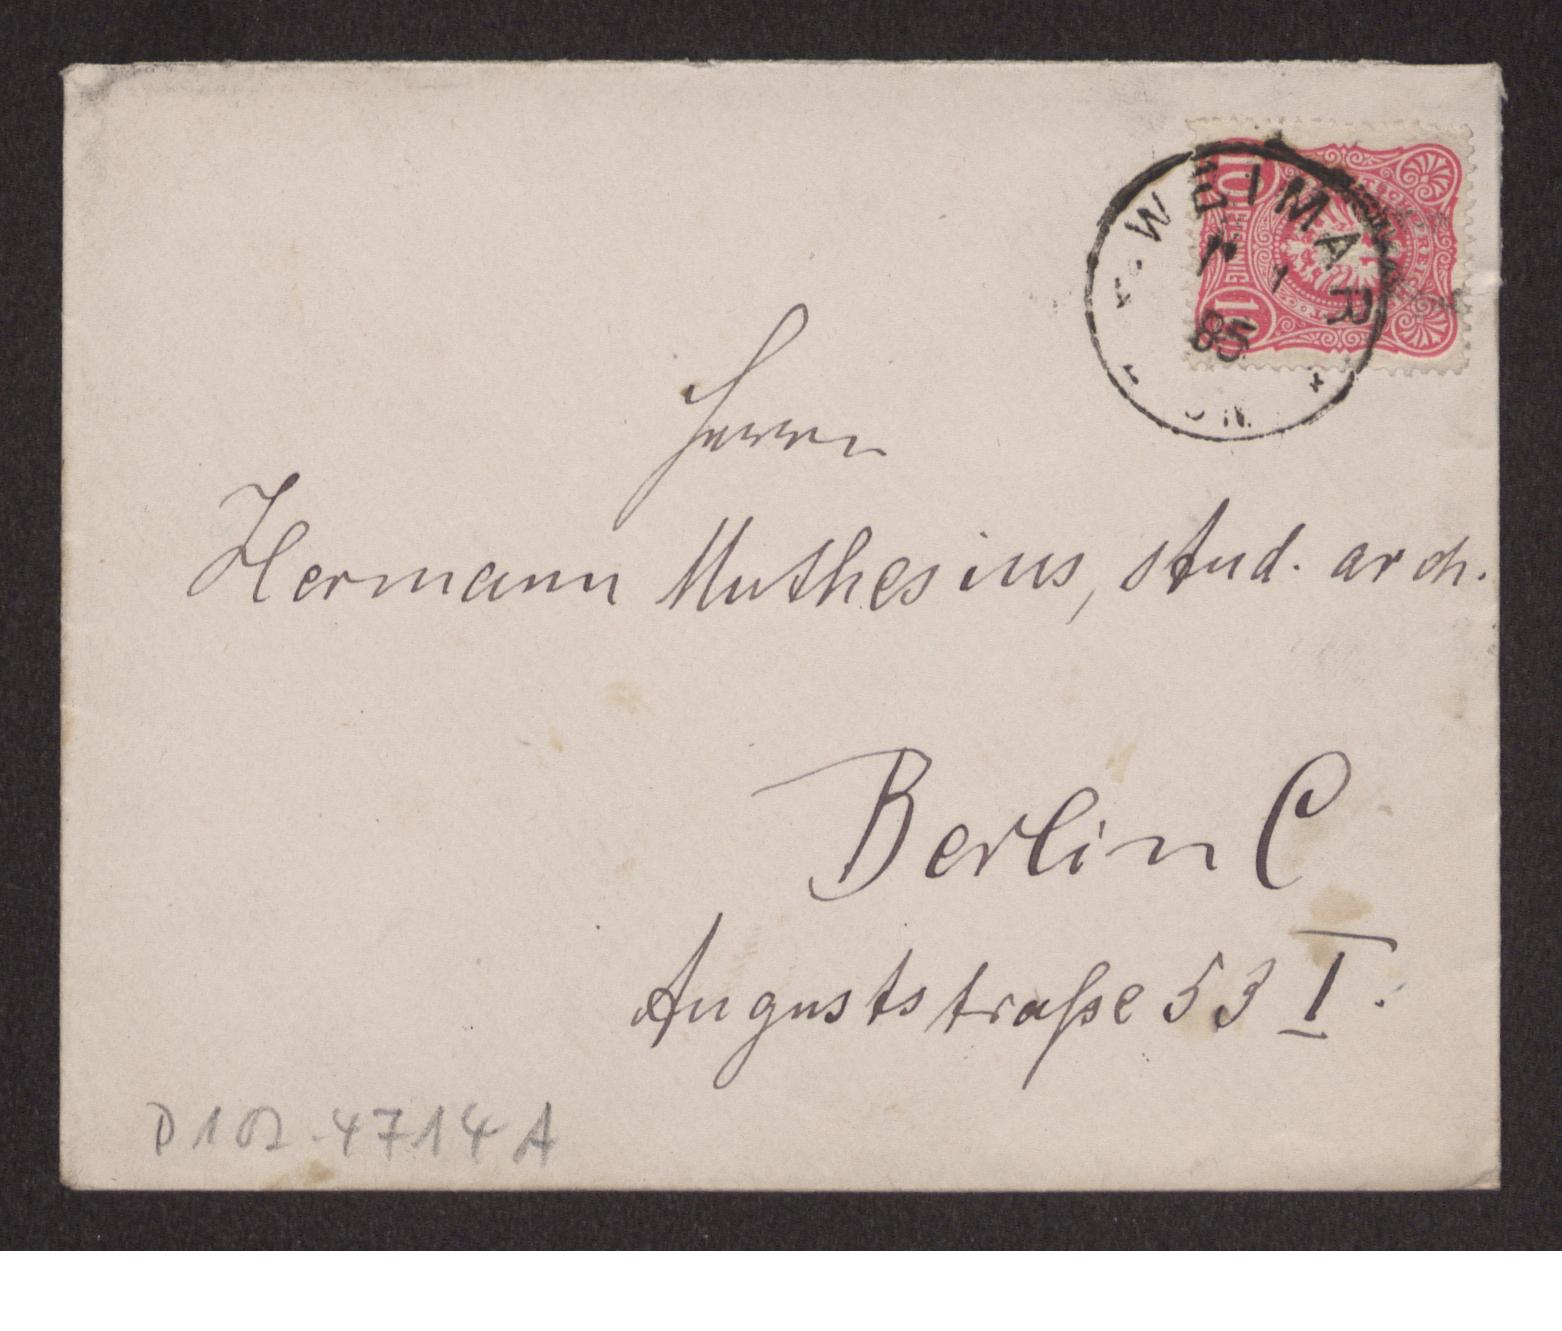 WEIMAR
1
85
10
10
Herrn
Hermann Muthesius, stud. arch.
Berlin C
Auguststraße 53 I.
D 102-4714 A